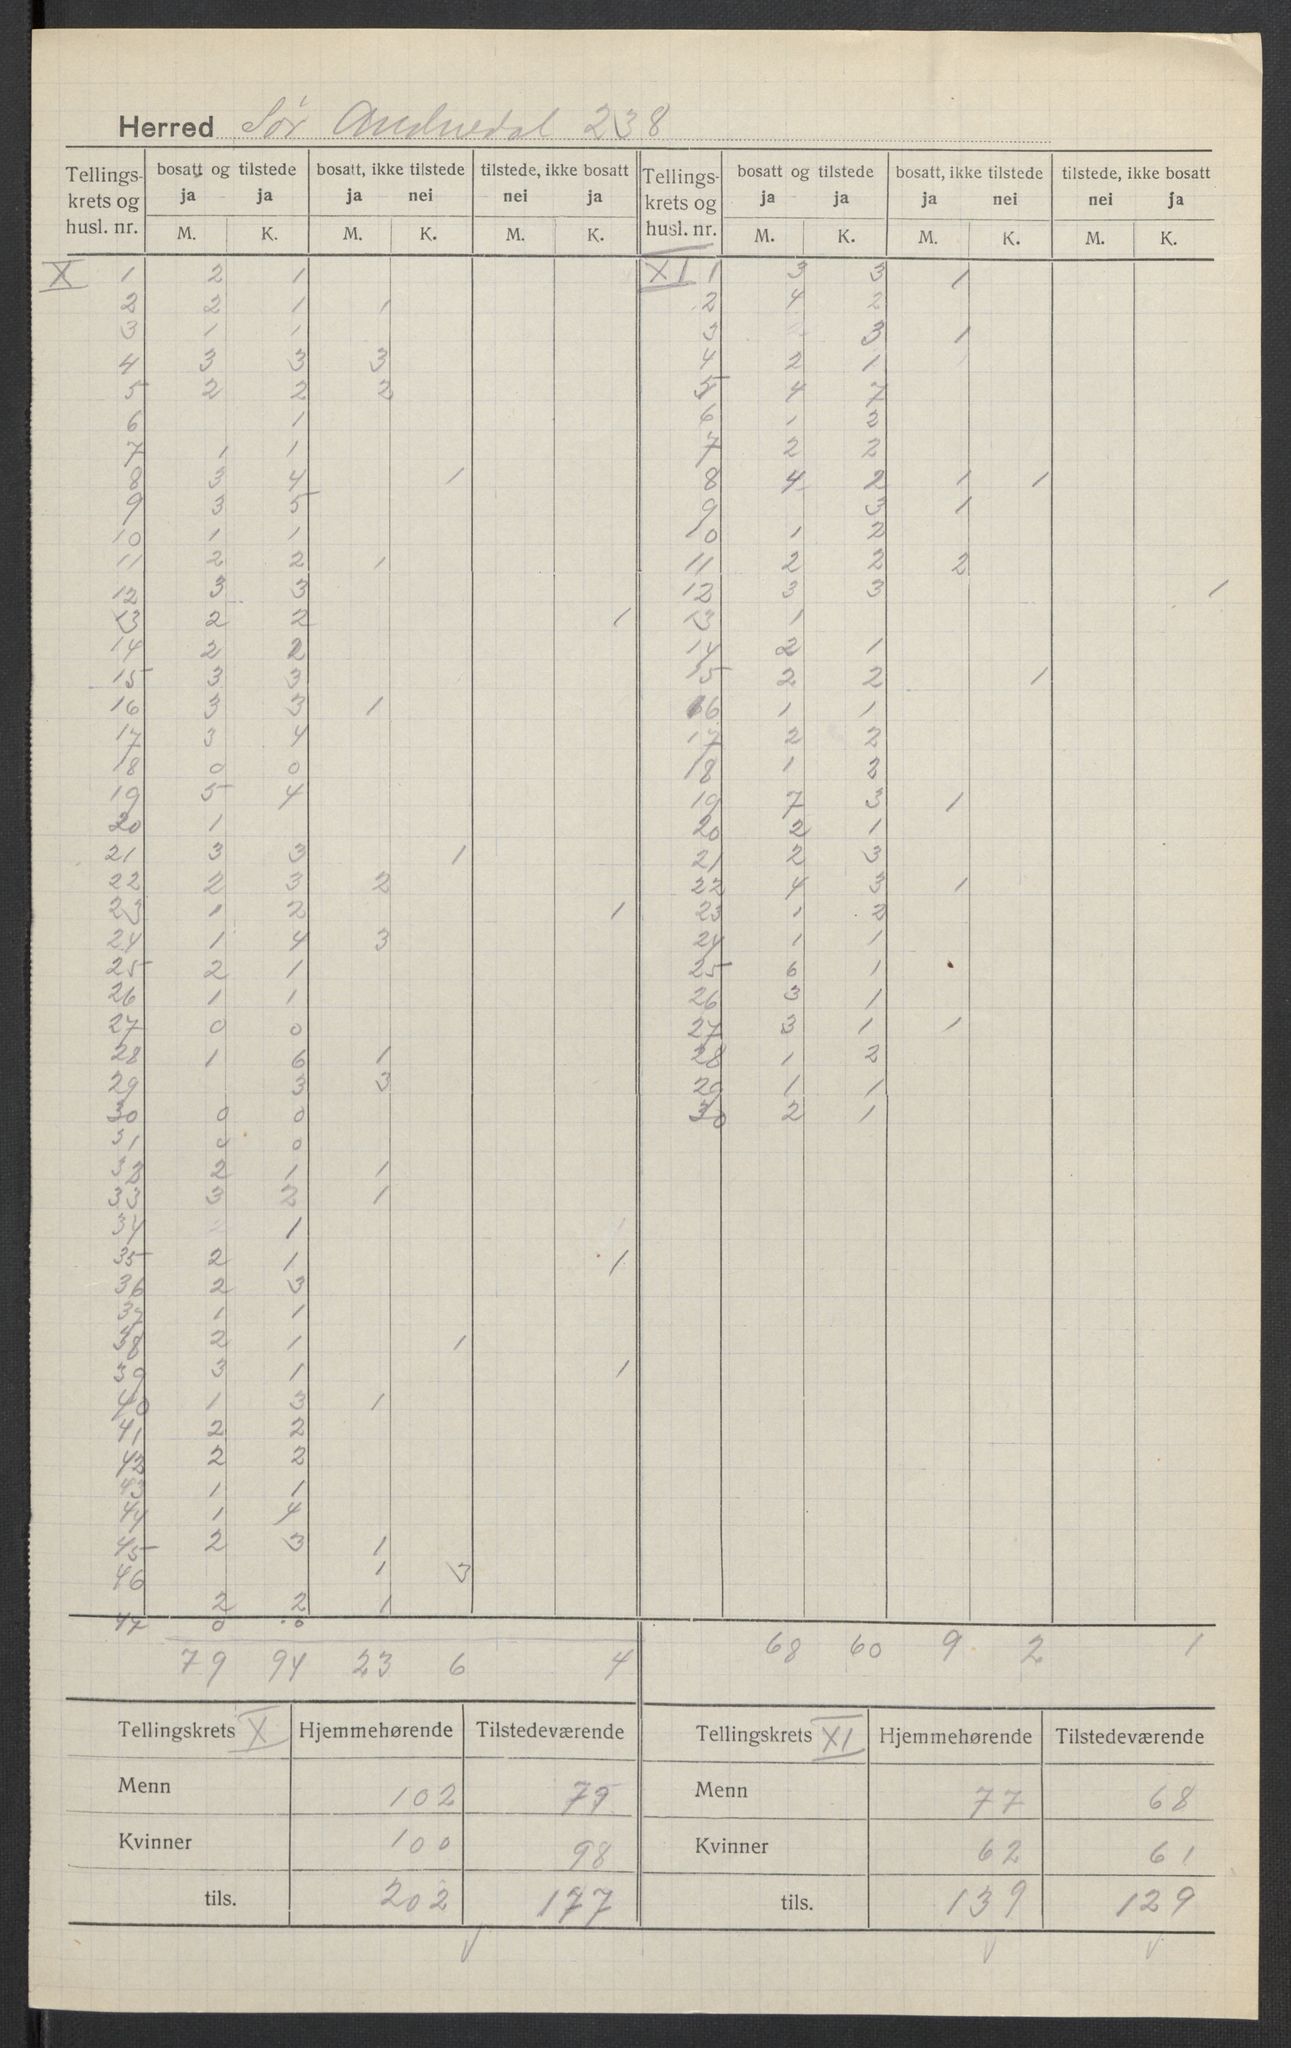 Herred Sør Audnedal 238
Tellings- krets og husl. nr. | bosatt og tilstede ja ja | bosatt, ikke tilstede ja nei | tilstede, ikke bosatt nei ja | Tellings- krets og husl. nr. | bosatt og tilstede ja ja | bosatt, ikke tilstede ja nei | tilstede, ikke bosatt nei ja
M. K. M. K. M. K. M. K. M. K. M. K.
X 1 2 1 XI 1 3 3 1
2 2 1 1 2 4 2
3 1 1 3 3 1
4 3 3 3 4 2 1
5 2 2 2 5 4 7
6 1 6 1 2
7 1 1 7 2 2
8 3 4 1 8 4 2 1 1
9 3 5 9 3 1
10 1 1 10 1 2
11 2 2 1 11 2 2 2
12 3 3 12 3 3 1
13 2 2 1 13 1
14 2 2 14 2 1
15 3 3 15 2 2 1
16 3 3 1 16 1 1
17 3 4 17 2 2
18 0 0 18 1 2
19 5 4 19 7 3 1
20 1 20 2 1
21 3 3 1 21 2 3
22 2 3 2 22 4 3 1
23 1 2 1 23 1 2
24 1 4 3 24 1 1
25 2 1 25 6 1
26 1 1 26 3 1
27 0 0 27 3 1 1
28 1 6 1 28 1 2
29 3 3 29 1 1
30 0 0 30 2 1
31 0 0
32 2 1 1
33 3 2 1
34 1
35 2 1 1
36 2 3
37 1 1
38 2 1 1
39 3 1 1
40 1 3 1
41 2 2
42 2 2
43 1 1
44 1 4
45 2 3 1
46 1 3
2 2 1
47 0 0
79 94 23 6 4 68 60 9 2 1
Tellingskrets X Hjemmehørende Tilstedeværende Tellingskrets XI Hjemmehørende Tilstedeværende
Menn 102 79 Menn 77 68
Kvinner 100 98 Kvinner 62 61
tils. 202 177 tils. 139 129